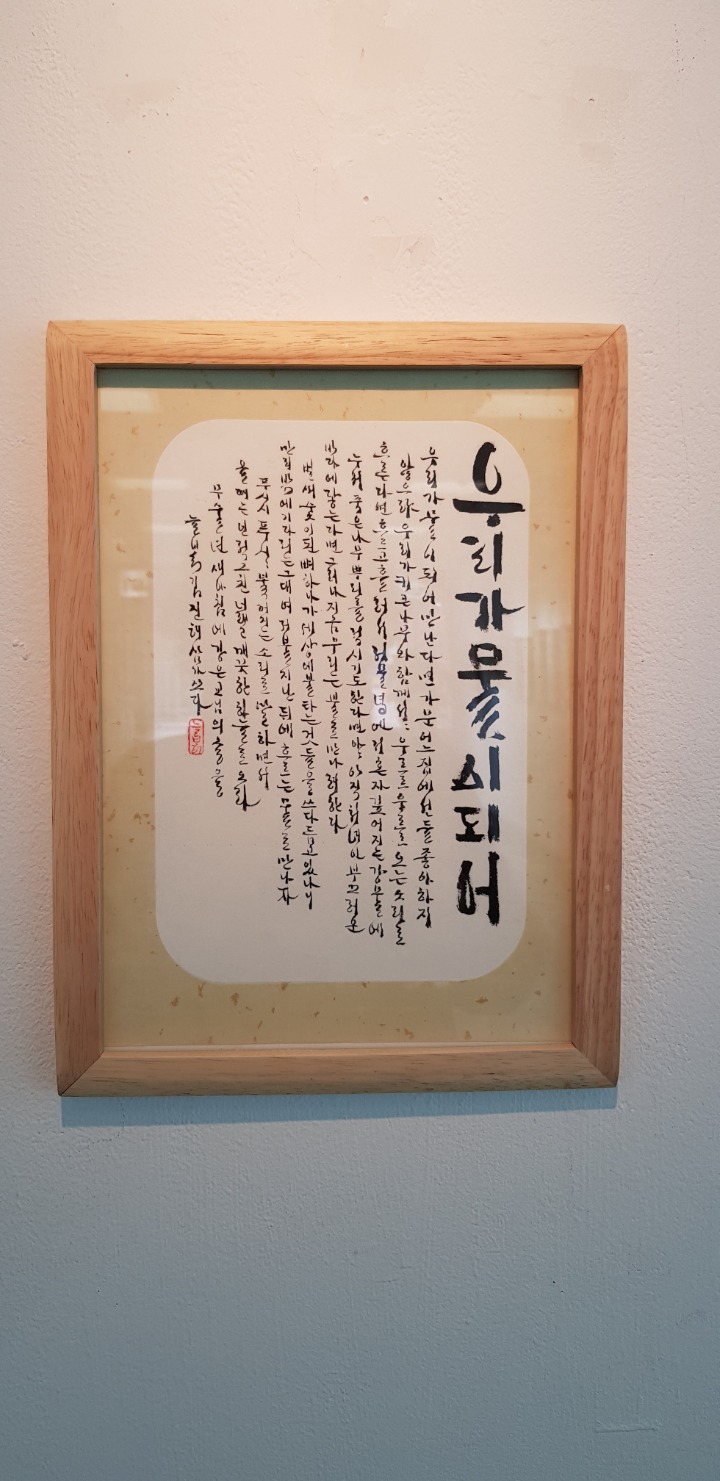 우리가 물이 되어
우리가 물이 되어 만난다면 가문 어느 집에선들 좋아하지
않으랴 우리가 키 큰 나무와 함께 서서 우르르 우르르 오는 소리로
흐른다면 흐르고 흘러서 저물녘에 저 혼자 깊어지는 강물에
누워 죽은 나무뿌리를 적시기도 한다면 아아 아직 처녀인 부끄러운
바다에 닿는다면 그러나 지금 우리는 불로 만나려 한다
벌써 숯이 된 뼈 하나가 세상에 불타는 것들을 쓰다듬고 있나니
만리 밖에 기다리는 그대여 저 불 지난 뒤에 흐르는 물로 만나자
푸시시 푸시시 불 꺼지는 소리로 말하면서
올 때는 인적 그친 넓고 깨끗한 하늘로 오라
무술년 새아침에 강은교님의
김진태 삼가쓰다